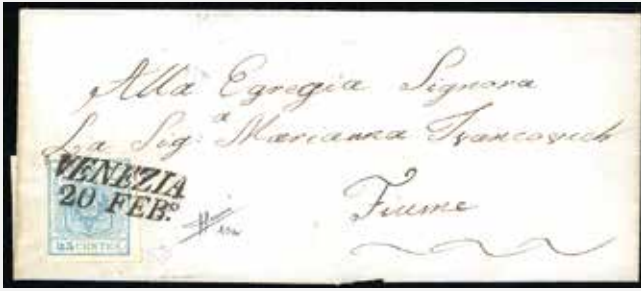 Alla Egregia Signora
La Sig.a Marianna Ivancovich
Fiume
VENEZIA
20 FEB.º
45 CENTES